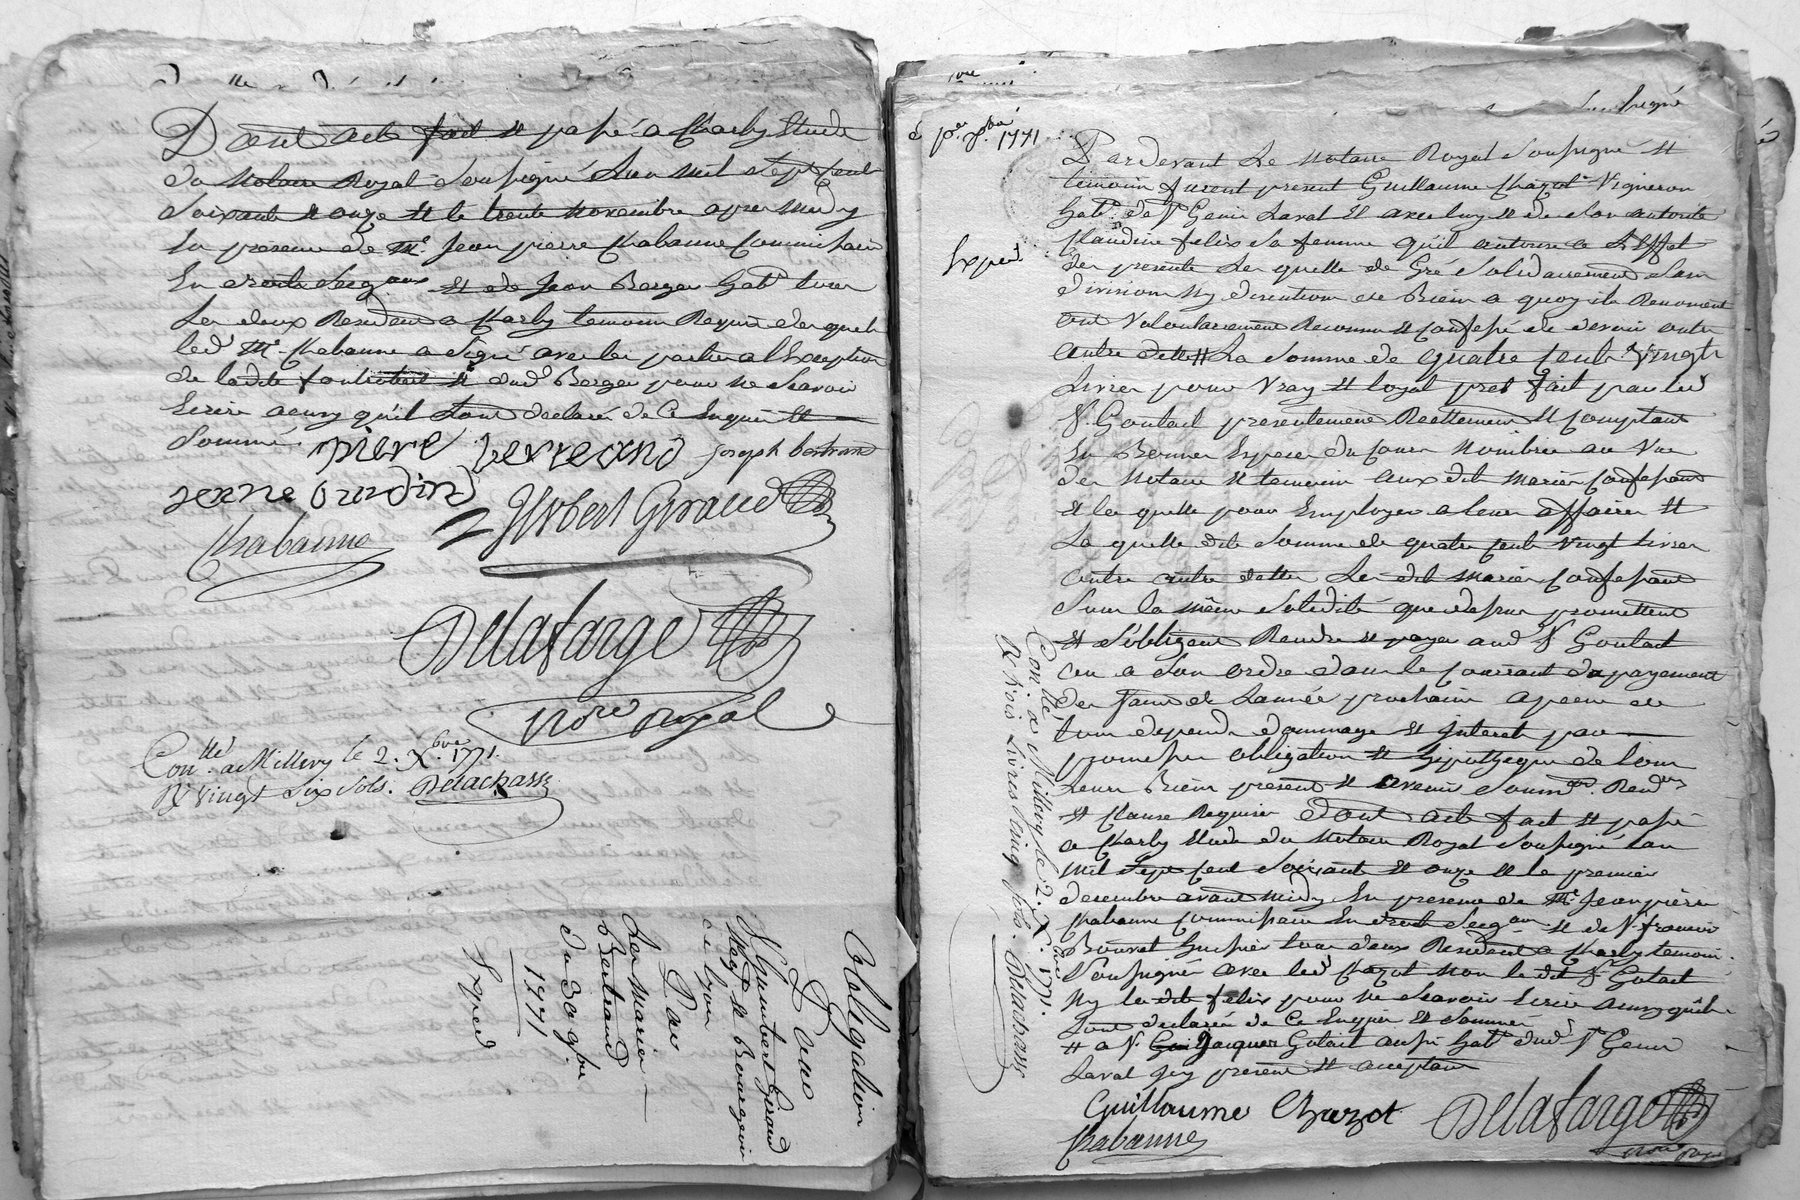 Dont acte fait et passé a Charly Etude
du Notaire Royal Soussigné L'an mil sept cent
Soixante et onze et le trente novembre apres midy
En presence de Me. Jean pierre Chabanne Commissaire
En droits Seigaux et de Jean Berger habt. tous
Les deux Residents a Charly temoins Requis desquels
led. Me. Chabanne a Signé avec les parties a l'Exception
de ladite et dud. Berger pour ne Scavoir
Ecrire ainsy qu'il ont declaré de Ce Enquis et
Sommé
piere bertrand joseph bertrand
jeanne ourdin
Chabanne Humbert Giraud
Delafarge
nore royal
Conllé. a Millery le 2. Xbre. 1771.
Rx vingt Six Sols. Delachasse
Obligation
Pour
Sr. humbert Giraud
Negt. et Bourgeois
de Lyon
Par
Les mariés
Bertrand
Du 30 9bre
1771
Exped
Du per. Xbre 1771
Exped
Pardevant Le Notaire Royal Soussigné et
temoins furent present Guillaume Chazot Vigneron
habt. de St Genis Laval et avec luy et de Son autorité
Claudine felix Sa femme qu'il autorise a L'Effet
des presente Lesquelle de Gré Solidairement Sans
division Ny discution de Bien a quoy ils Renoncent
ont Volontairement Reconnu et Confessé de devoir outre
autre dette # La Somme de quatre Cent Vingt
Livres pour Vray et loyal prest fait par led
Sr. Goutail presentement Reellement et Comptant
En Bonnes Especes du Cours Nombrée au Vue
des Notaire et temoins aux dits mariés Confessant
et laquelle pour Employer a leurs affaires et
Laquelle dite Somme de quatre Cent Vingt Livres
outre autre dette Les dits mariés Confessant
Sous la même Solidité que dessus promettent
et S'obligent Rendre et payer aud Sr Goutail
ou a Son ordre dans le Courrant du payement
des Saint de L'année prochaine a peine de
tous depends dommage et interet par
promesses obligation et hipotheque de tous
Leurs Biens present et avenir Soumons. Renons
et Clauses Requises Dont acte fait et passé
a Charly Etude du Notaire Royal Soussigné L'an
mil Sept Cent Soixante et onze et le premier
decembre avant midy En presence de Me. Jean pierre
Chabanne Commissaire En droits Seigaux et de Sr. francois
Bouvret huissier tous deux Residents a Charly temoins
Soussignés avec led Chazot non le dit Sr Gotail
Ny la dite felix pour ne Scavoir Ecrire ainsy qu'ils
ont declarés de Ce Enquis et Sommés
# a Sr. Jacques Gotail aussi habt dud St Genis
Laval icy present et acceptant
Guillaume Chazot Delafarge
Chabanne nore royal
Conllé a Millery le 2. Xbre 1771.
Rx trois Livres cinq Sols. Delachasse